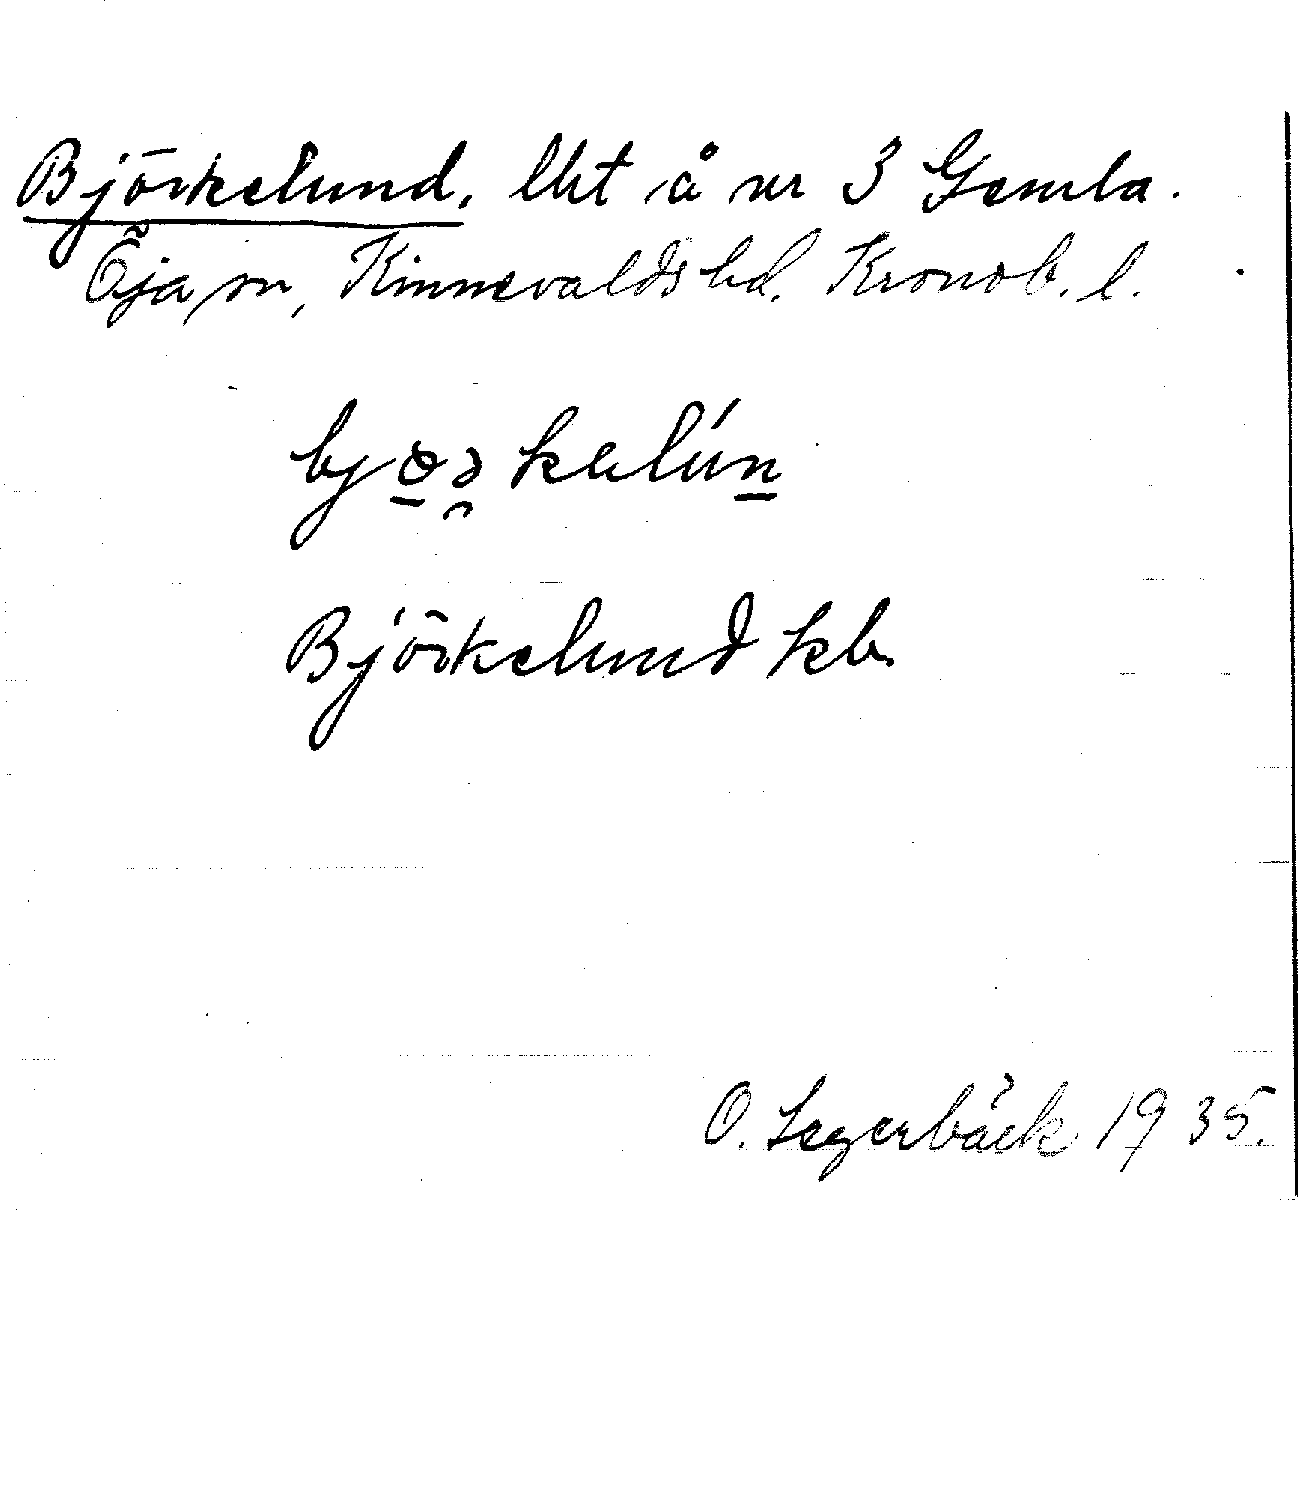 Björkelund, lht å nr 3 Gemla.
Öja sn, Kinnevalds hd. Kronob. l.
Björkelund kb.
O. Lagerbäck 1935.